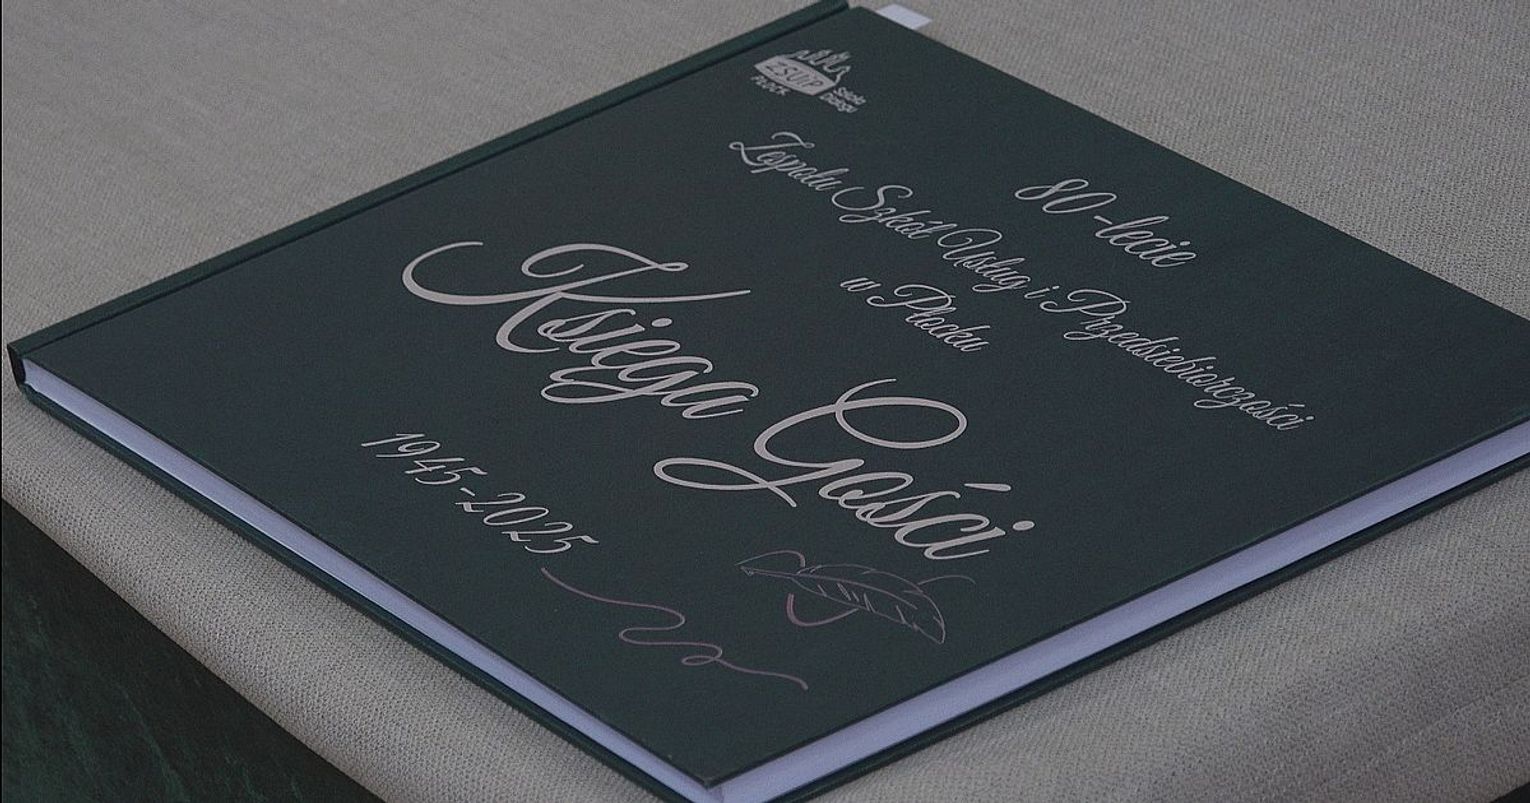 ZSUiP
PŁOCK
Szkoła
Dialogu
80-lecie
Zespołu Szkół Usług i Przedsiębiorczości
w Płocku
Księga Gości
1945-2025